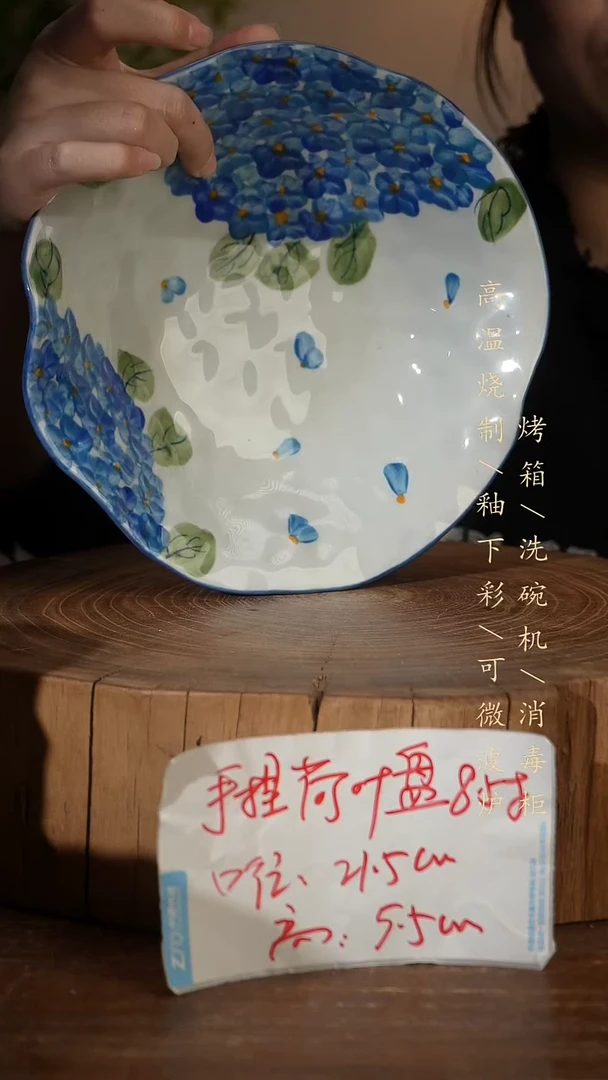 高温烧制\釉下彩\可微波炉
烤箱\洗碗机\消毒柜
手捏荷叶盘8吋
口径:21.5cm
高:5.5cm